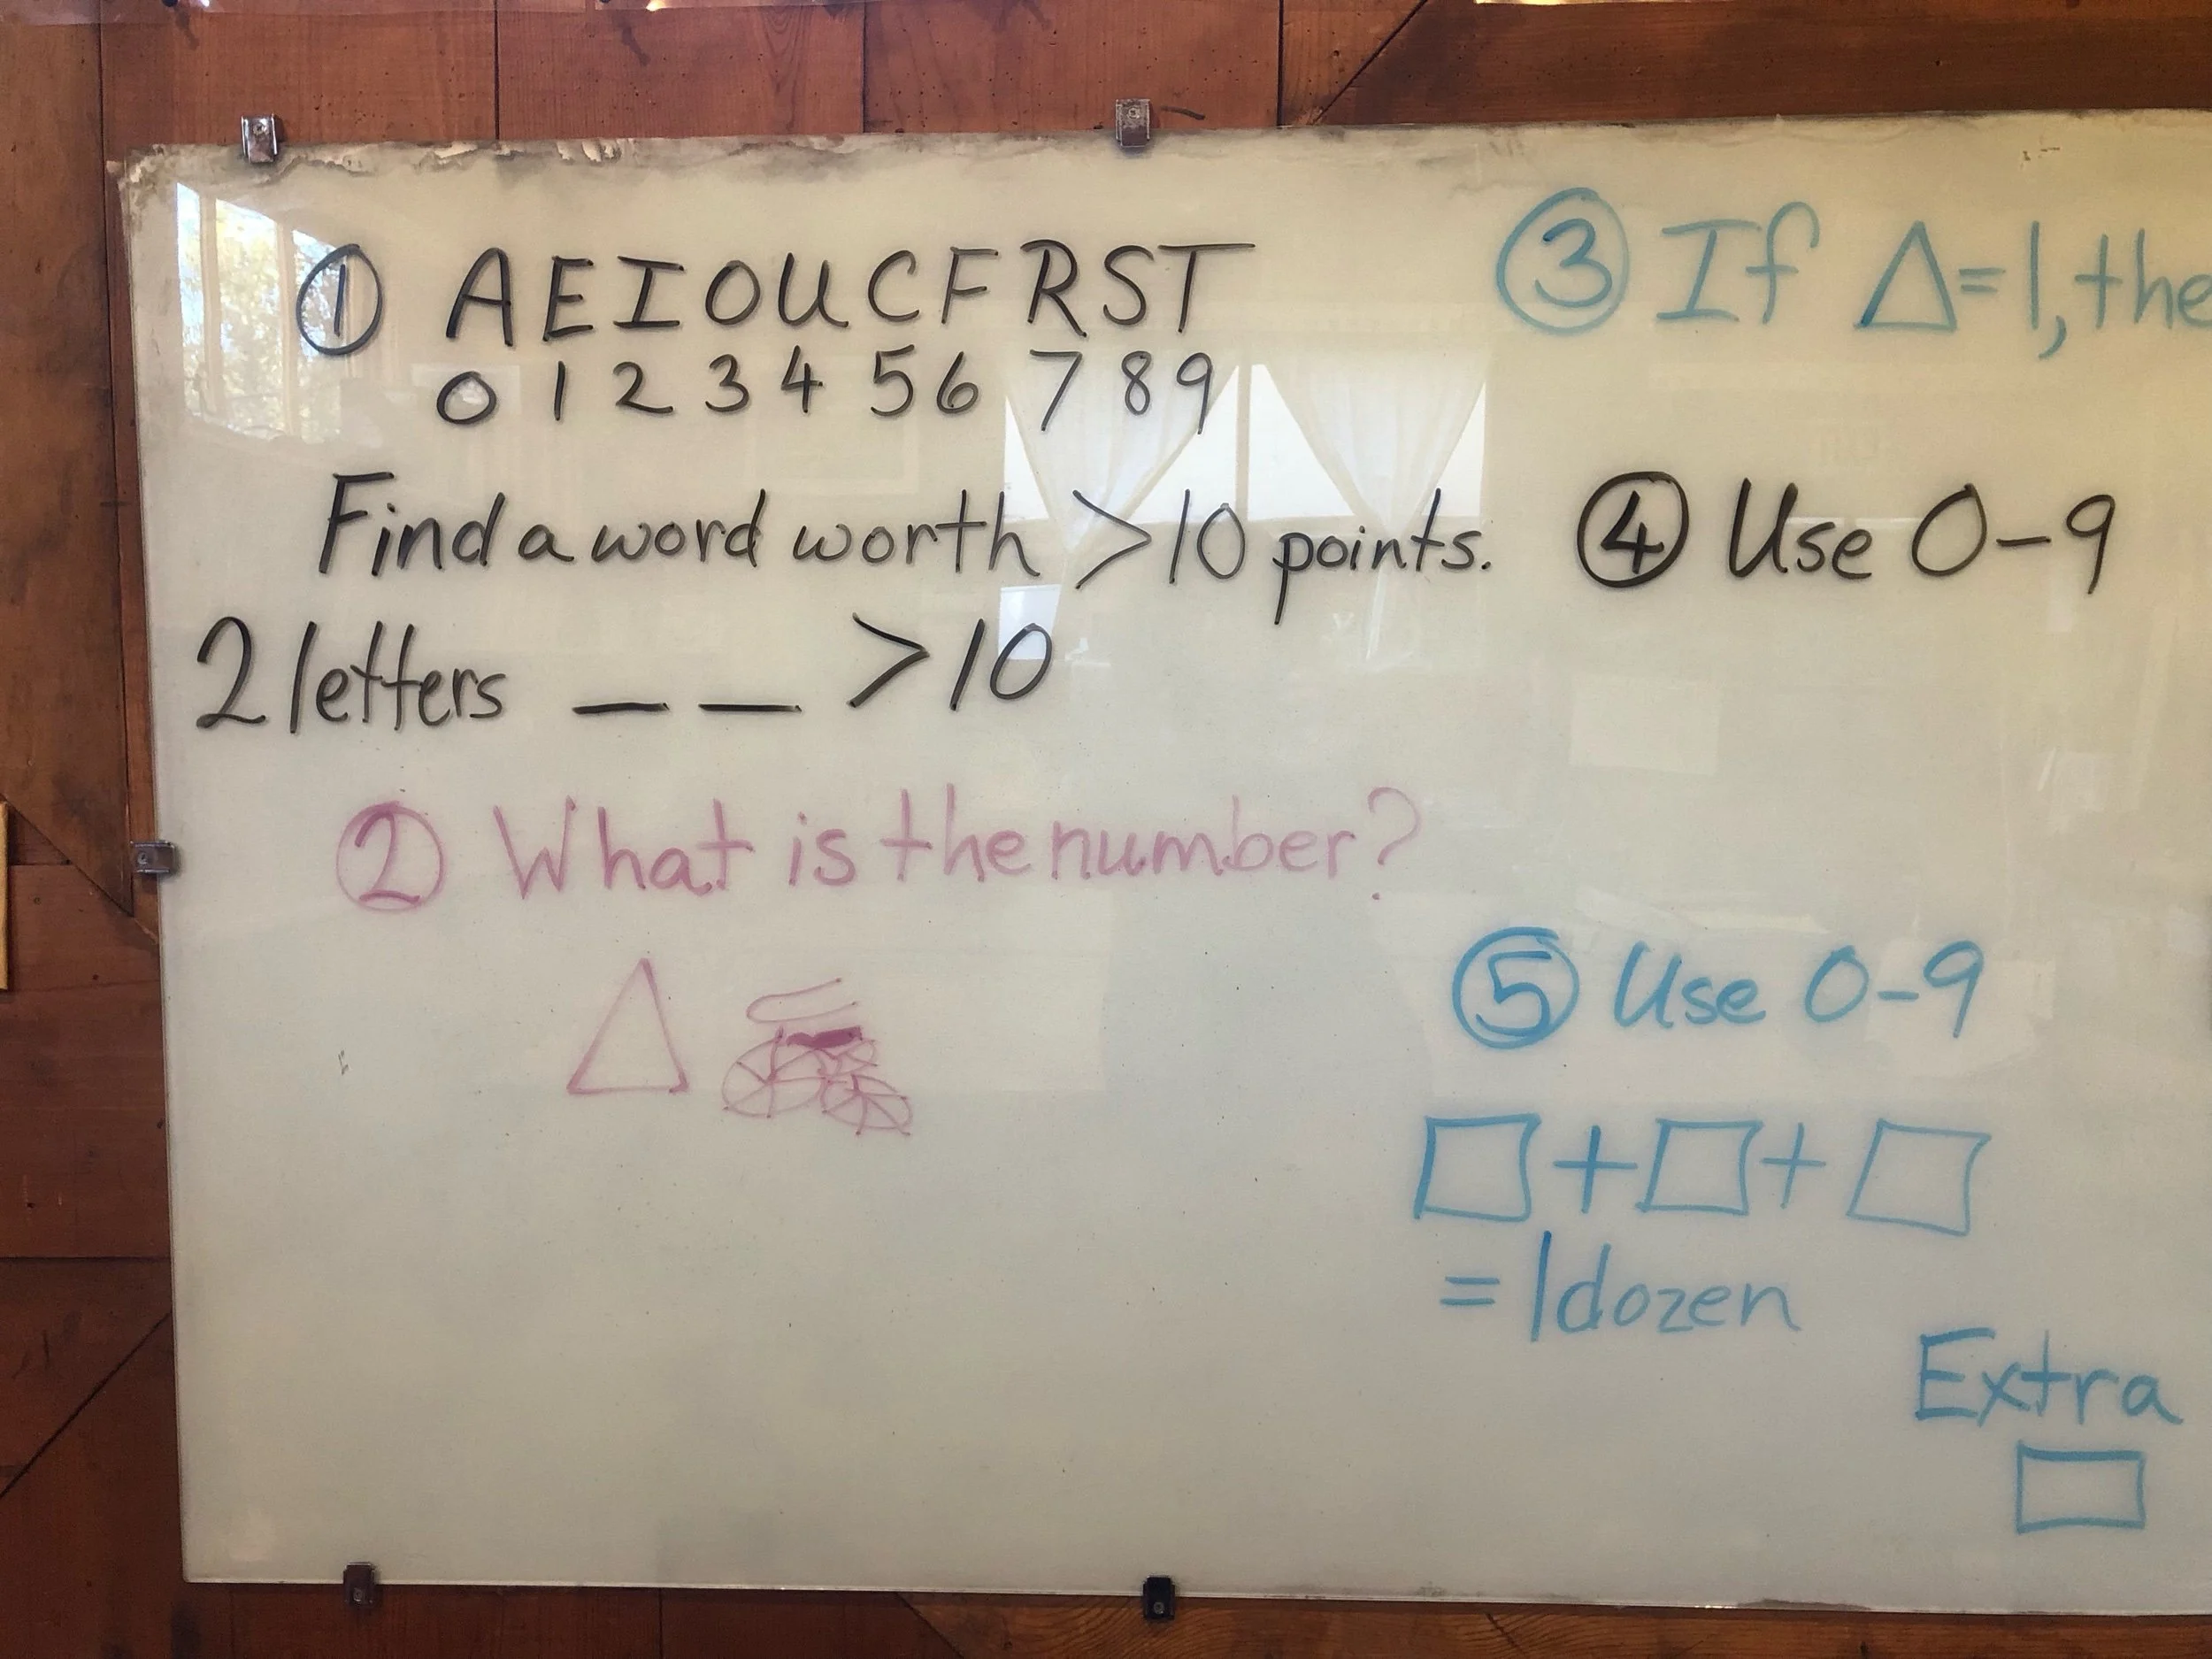 ① A E I O U C F R S T
0 1 2 3 4 5 6 7 8 9
Find a word worth >10 points.
2 letters _ _ >10
② What is the number?
③ If △=1, the
④ Use 0-9
⑤ Use 0-9
□+□+□
=1dozen
Extra